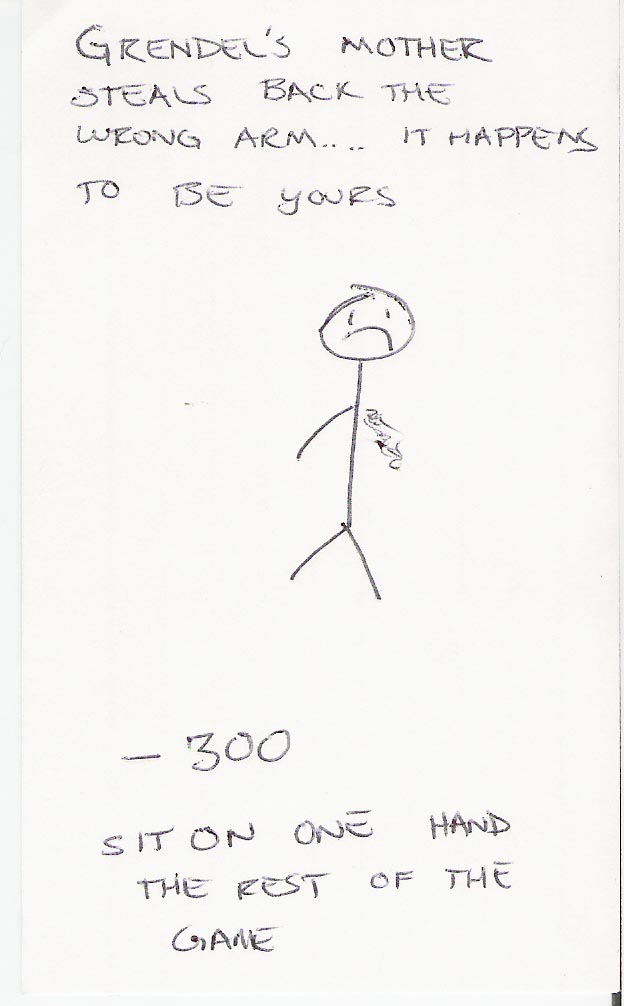 GRENDEL'S MOTHER
STEALS BACK THE
WRONG ARM.... IT HAPPENS
TO BE YOURS
- 300
SIT ON ONE HAND
THE REST OF THE
GAME